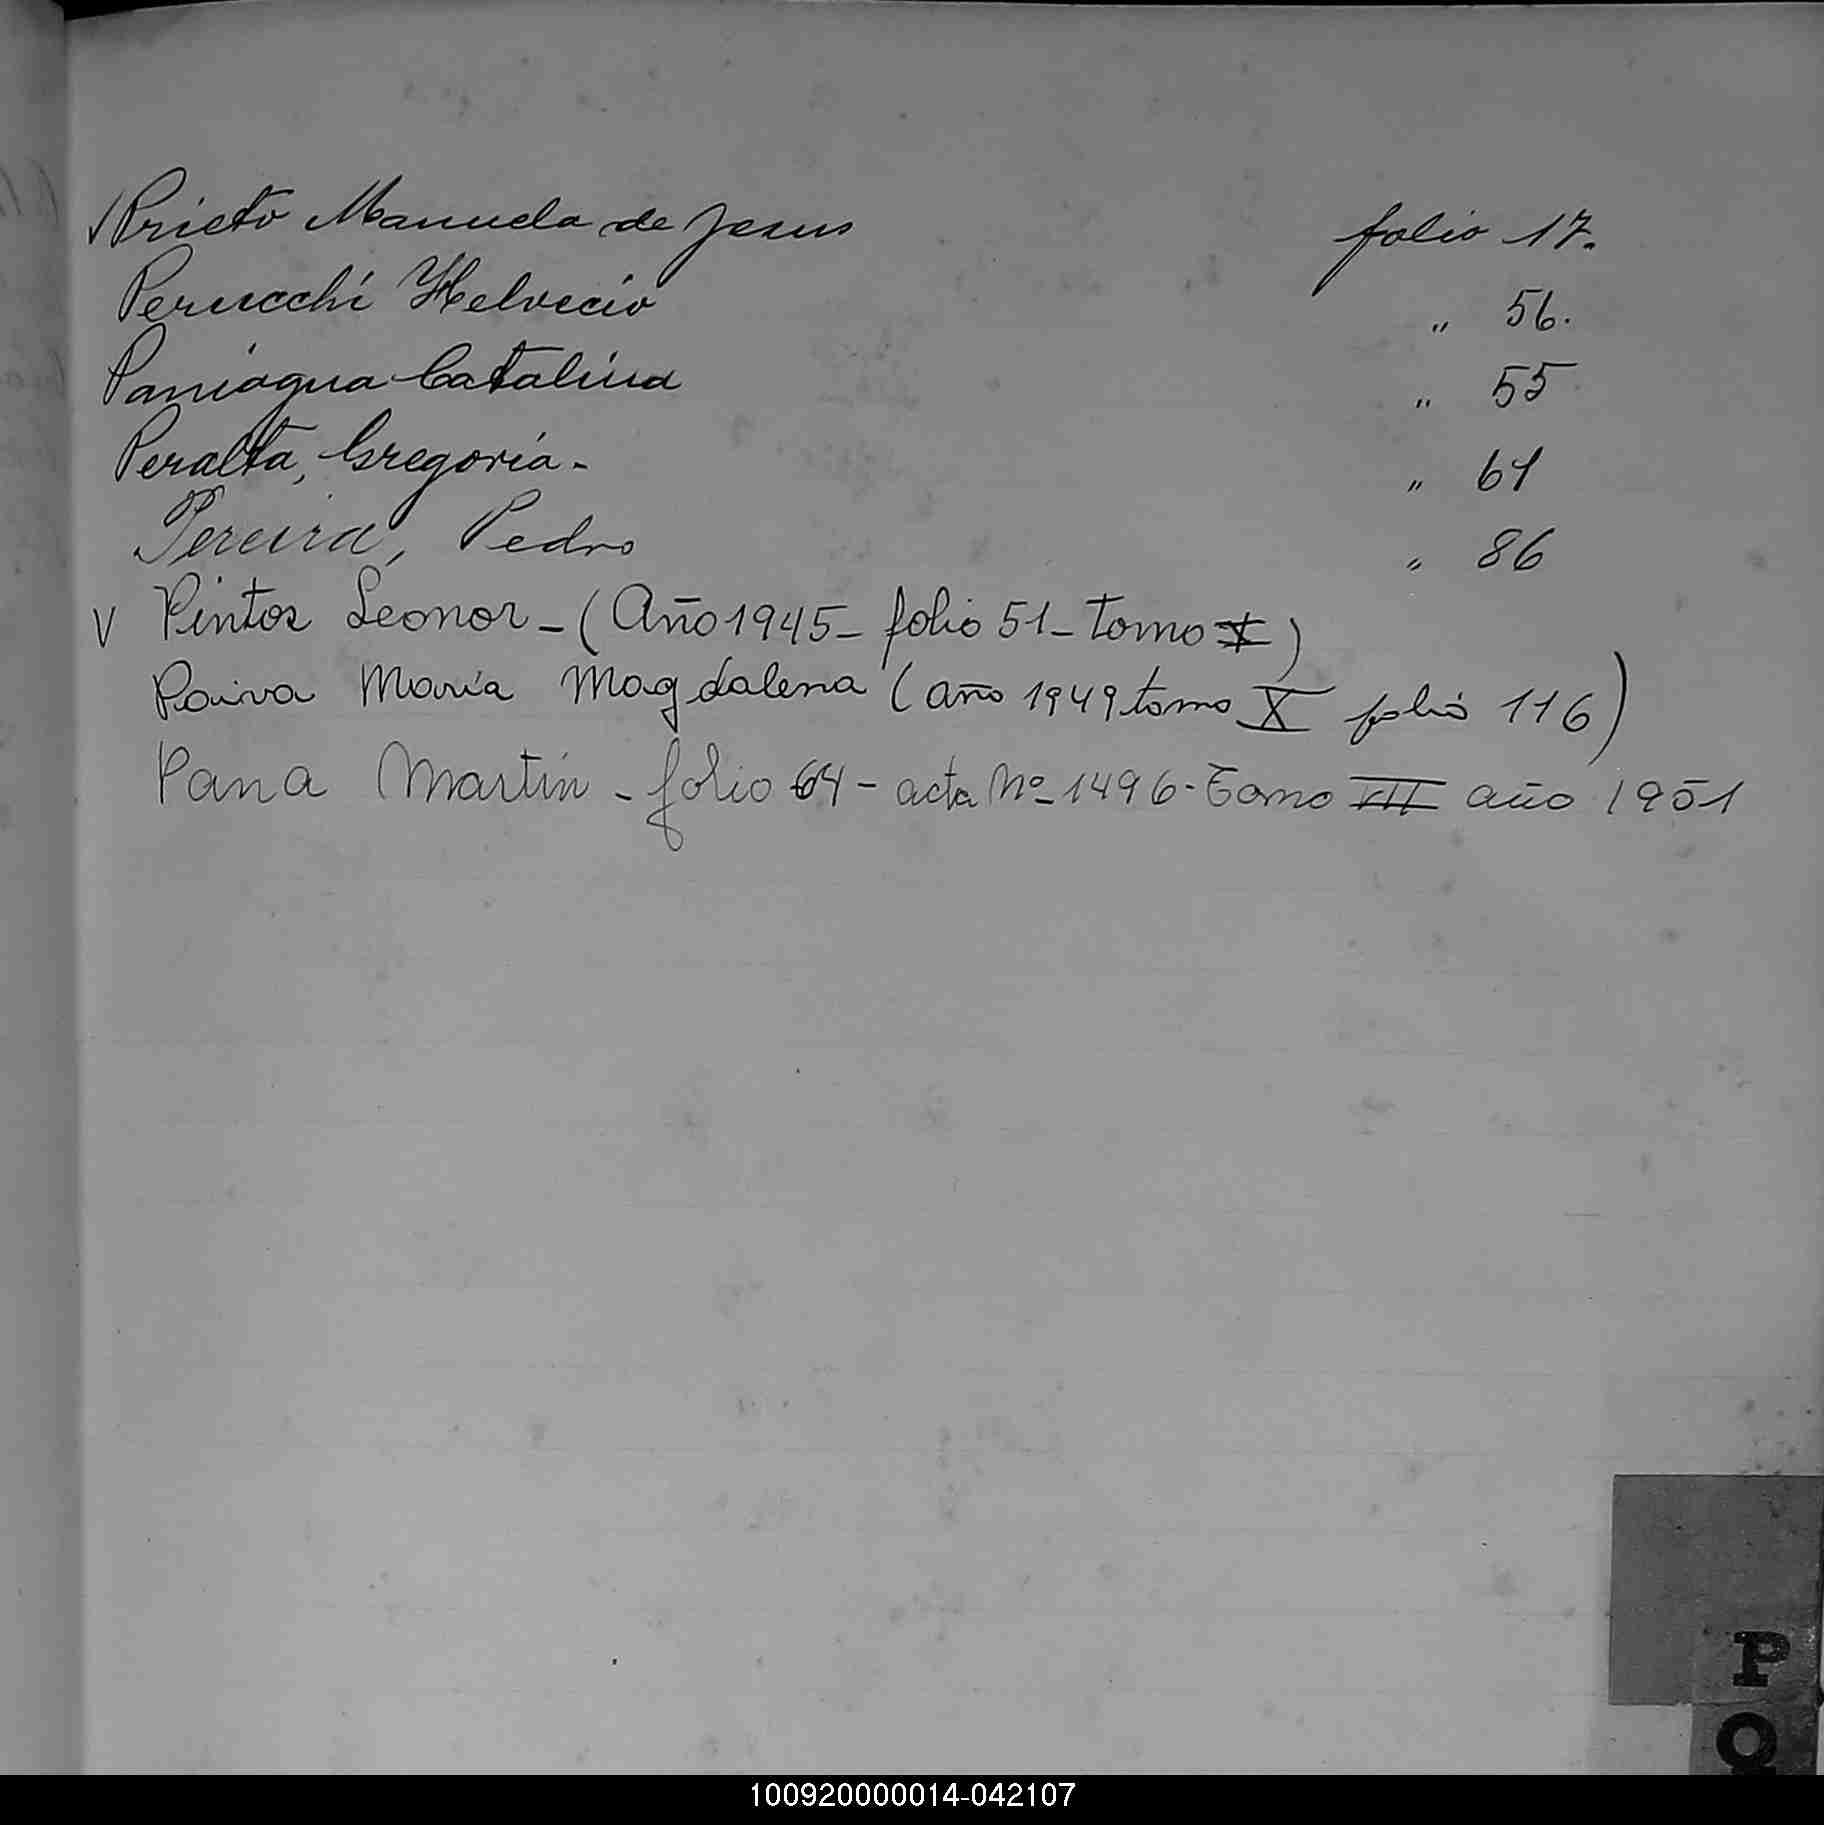 √ Prieto Manuela de Jesus folio 17.
Perucchi Helvecio " 56.
Paniagua Catalina " 55
Peralta, Gregoria - " 61
Pereira, Pedro " 86
V Pintos Leonor - (Año 1945 - folio 51 - Tomo X)
Paiva María Magdalena (año 1949 tomo X folio 116)
Pana Martín - folio 64 - acta Nº 1496 - Tomo III año 1951
P
Q
100920000014-042107